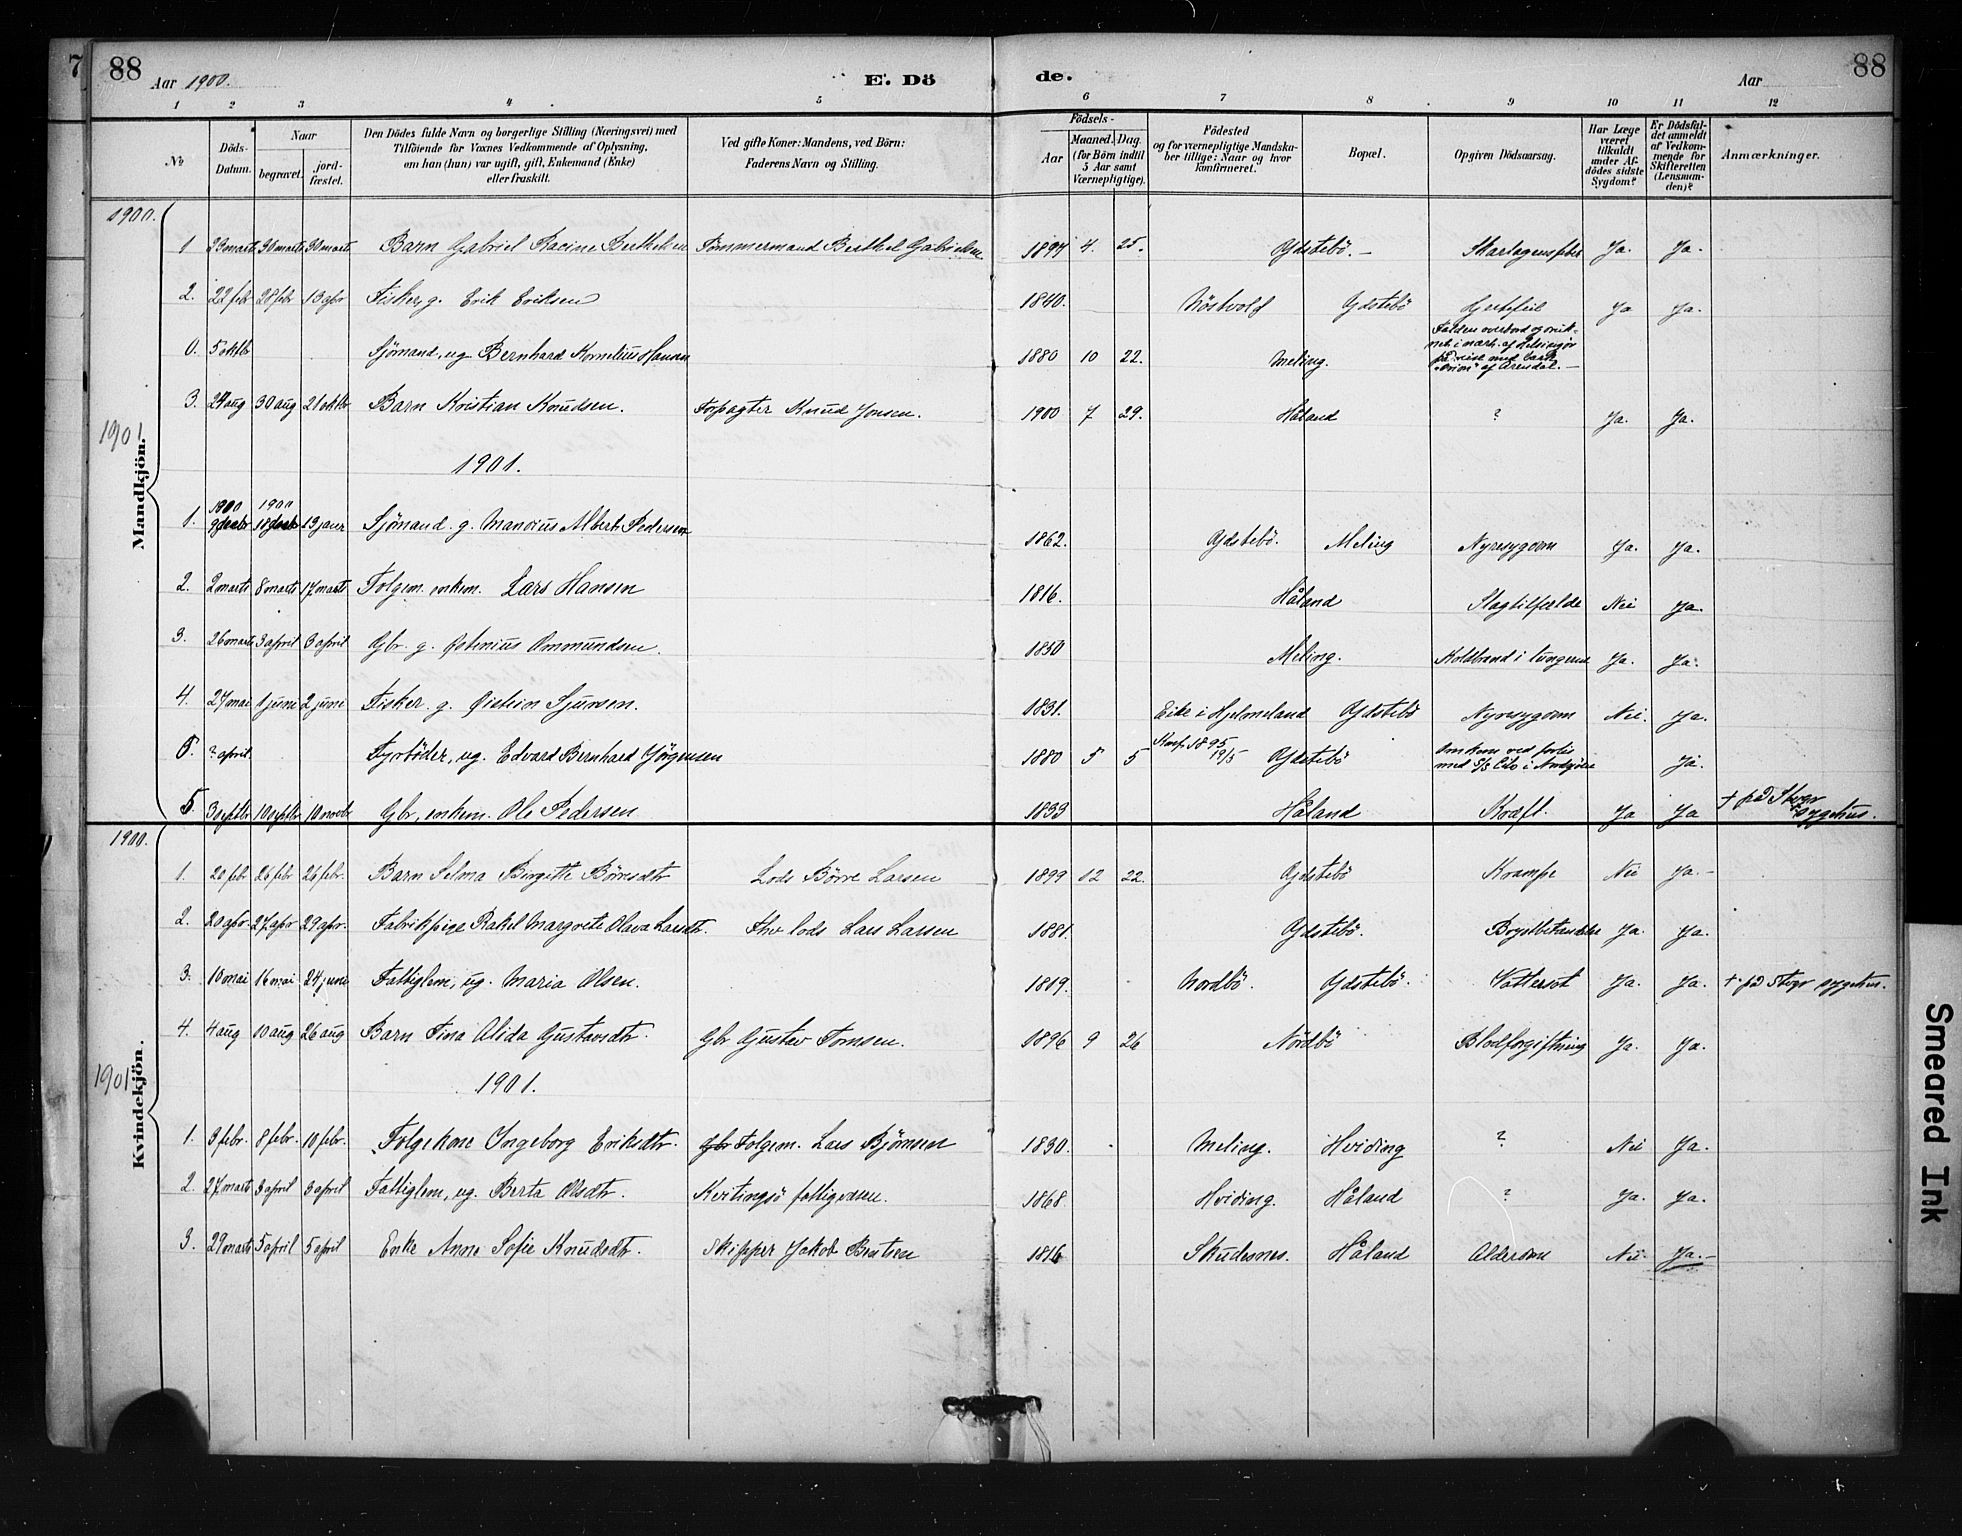 7 88 Aar 1900. E. Dö de. Aar 88
1 2 3 4 5 6 7 8 9 10 11 12
No
Döds-Datum.
Naar
begravet.
jord-fæstet.
Den Dödes fulde Navn og borgerlige Stilling (Næringsvei) med
Tilföiende for Voxnes Vedkommende af Oplysning,
om han (hun) var ugift, gift, Enkemand (Enke)
eller fraskilt.
Ved gifte Koner: Mandens, ved Börn:
Faderens Navn og Stilling.
Födsels-
Aar
Maaned. Dag.
(for Börn indtil
5 Aar samt
Værnepligtige).
Födested
og for værnepligtige Mandska-
ber tillige: Naar og hvor
konfirmeret.
Bopæl.
Opgiven Dödsaarsag.
Har Læge
været
tilkaldt
under Af-
dödes sidste
Sygdom?
Er Dödsfal-
det anmeldt
af Vedkom-
mende for
Skifteretten
(Lensman-
den)?
Anmærkninger.
1900.
Mandkjön.
1 23 marts 30 marts 30 marts Barn Gabriel Racine Berthelsen Tømmermand Berthel Gabrielsen 1897 4. 25. Ydstebö. — Skarlagensfeber Ja. Ja.
2. 22 febr 28 febr 13 apr Fisker g. Erik Eriksen 1840. Nöstvold Ydstebö Hjertefeil Ja Ja.
0. 5 oktbr Sjømand, ug. Bernhard Kornelius Hansen 1880 10 22. Meling. Falden overbord og druk-
net i nærh. af Helsingör
på reise med bark
"Orion" af Arendal. —
3. 24 aug 30 aug 21 oktbr Barn Kristian Knudsen. Forpagter Knud Jonsen. 1900 7 29. Håland ? Ja. Ja.
1901
1901.
1. 1900 9 decbr 1900 18 decbr 13 januar Sjømand. g. Mandius Albert Pedersen 1862. Ydstebö. Meling Nyresygdom Ja. Ja.
2. 2 marts 8 marts 17 marts Folgem. enkem. Lars Hansen 1816. Håland Slagtilfælde Nei Ja.
3. 26 marts 3 april 3 april Gbr. g. Østenius Ommundsen. 1850 Meling. Koldbrand i lungerne Ja. Ja.
4. 27 mai 1 juni 2 juni Fisker. g. Øistein Sjursen. 1831. Eike i Hjelmeland Ydstebö Nyresygdom Nei. Ja.
0. ? april. Fyrböder, ug. Edvard Bernhard Jörgensen 1880 5 5 Konf. 1895 19/5 Ydstebö Omkom ved forlis
med S/S Cito i Nordsjöen Ja.
5. 3 septbr 10 septbr 10 novbr Gbr, enkem. Ole Pedersen 1833 Håland Kræft. Ja Ja + på Stvgr sygehus.
1900.
Kvindekjön.
1. 20 febr 26 febr 26 febr. Barn Selma Birgitte Börresdtr Lods Börre Larsen 1899 12 22. Ydstebö Krampe Nei Ja. —
2. 20 apr. 27 apr 29 apr. Fabrikpige Rakel Margrete Olava Larsdtr. Fhv lods Lars Larsen 1881. Ydstebö. Brystbetændelse Ja. Ja.
3. 10 mai 16 mai 24 juni Fattiglem, ug. Maria Olsen. 1819. Nordbö. Ydstebö. Vattersot Ja. Ja. + på Stvgr sygehus.
4. 4 aug 10 aug 26 aug Barn Tina Alida Gustavsdtr. Gbr Gustav Tornsen. 1896 9 26 Nordbö Blodforgiftning Ja. Ja.
1901
1901.
1. 3 febr. 8 febr. 10 febr. Folgekone Ingeborg Eriksdtr. Gbr Folgem. Lars Bjørnsen 1830. Meling. Hviding ? Nei Ja.
2. 27 marts 3 april 3 april Fattiglem, ug. Berta Olsdtr. Kvitingsö fattigvæsen. 1868. Hviding. Håland ? Ja. Ja.
3. 29 marts 5 april 5 april Enke Anne Sofie Knudsdtr. Skipper Jakob Bentsen 1816 Skudesnes. Håland Alderdom Nei. Ja. —
Smeared Ink